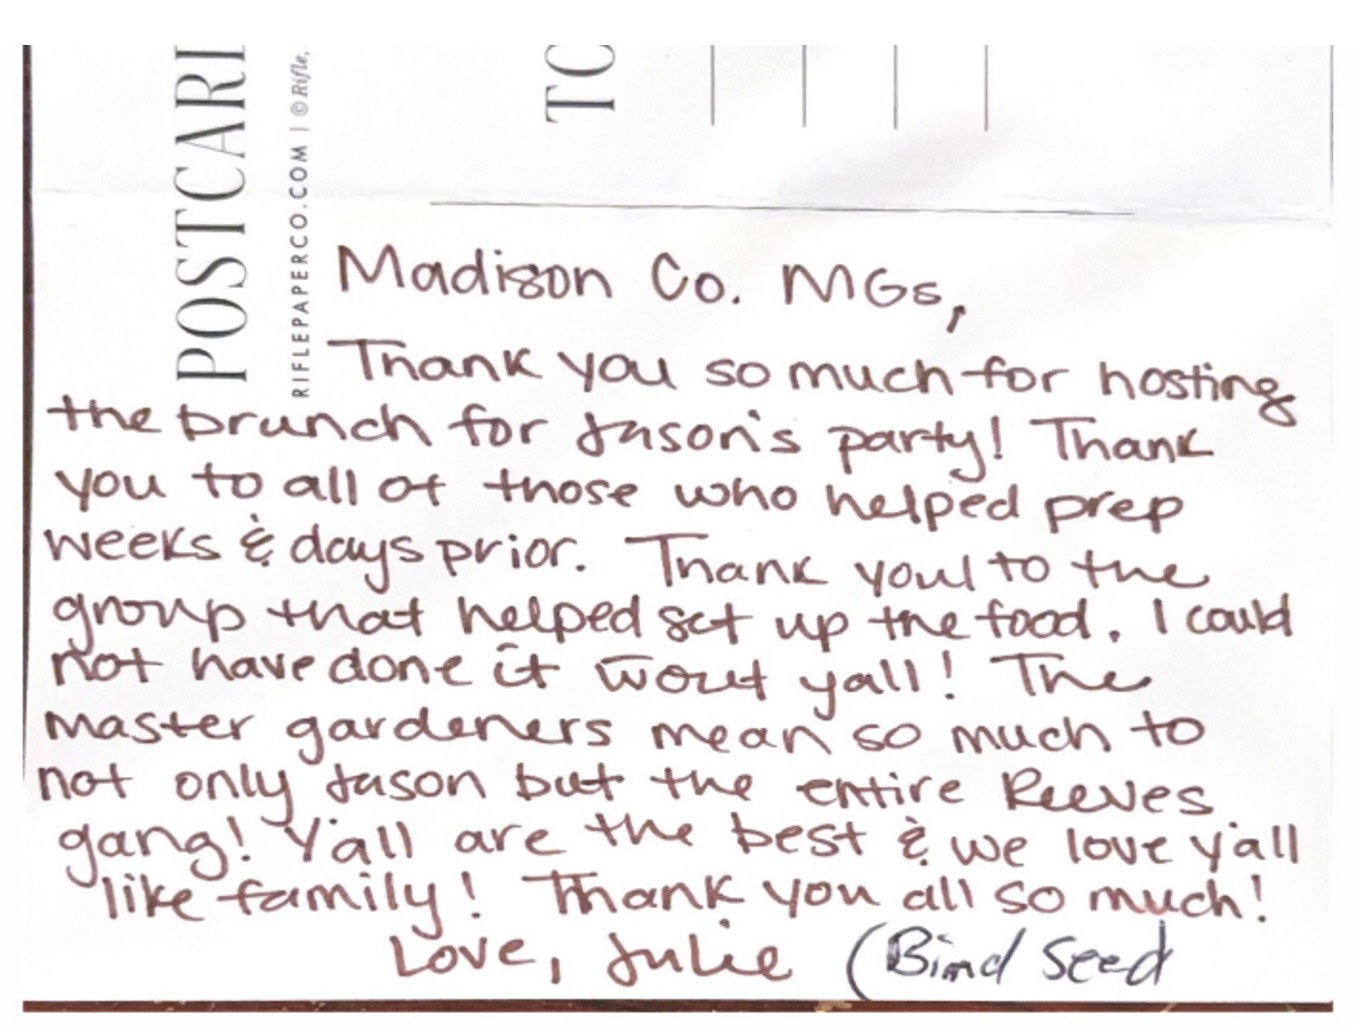 POSTCARD
RIFLEPAPERCO.COM | © Rifle,
TO
Madison Co. MGs,
Thank you so much for hosting
the brunch for Jason's party! Thank
you to all of those who helped prep
weeks & days prior. Thank you to the
group that helped set up the food. I could
not have done it w̄out yall! The
master gardeners mean so much to
not only Jason but the entire Reeves
gang! Y'all are the best & we love y'all
like family! Thank you all so much!
Love, Julie (Bind Seed